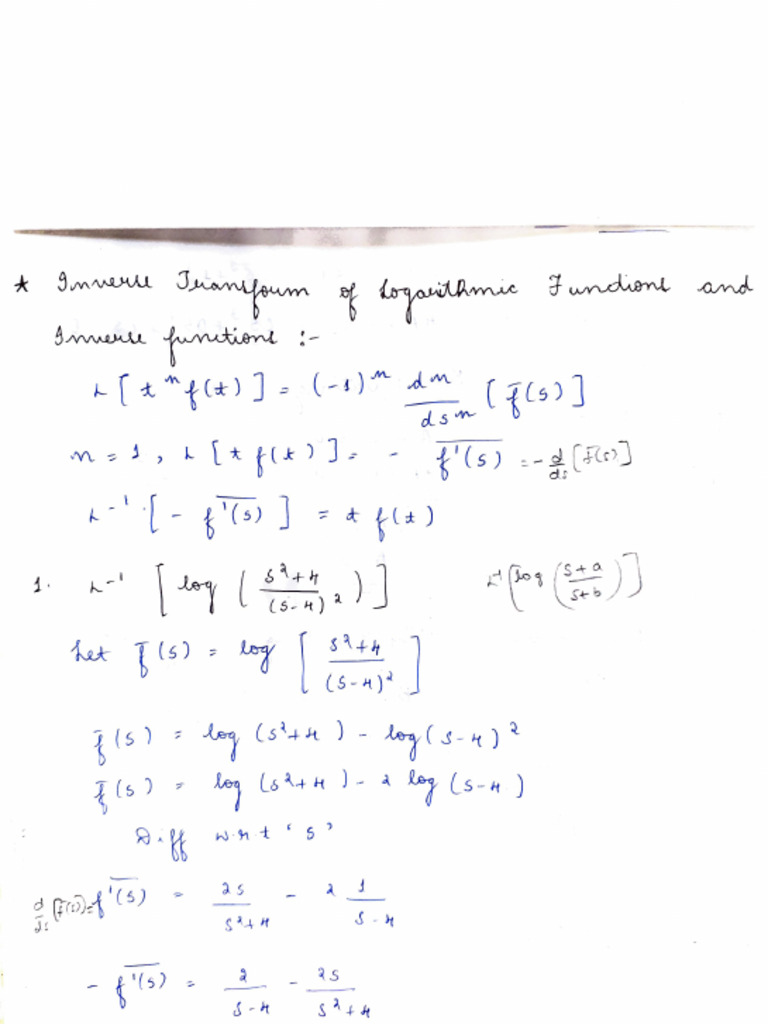 * Inverse Transfoum of Logarithmic Functions and
Inverse functions :-
L [ t^n f(t) ] = (-1)^n d^n/ds^n [ f̄(s) ]
n = 1, L [ t f(t) ] = - f̄'(s) = - d/ds [ f̄(s) ]
L^-1 [ - f̄'(s) ] = t f(t)
1. L^-1 [ log ( s^2+4 / (s-4)^2 ) ] L^-1 [ log ( s+a / s+b ) ]
Let f̄(s) = log [ s^2+4 / (s-4)^2 ]
f̄(s) = log (s^2+4) - log(s-4)^2
f̄(s) = log (s^2+4) - 2 log (s-4)
Diff w.r.t 's'
d/ds [f̄(s)] = f̄'(s) = 2s/s^2+4 - 2 1/s-4
- f̄'(s) = 2/s-4 - 2s/s^2+4